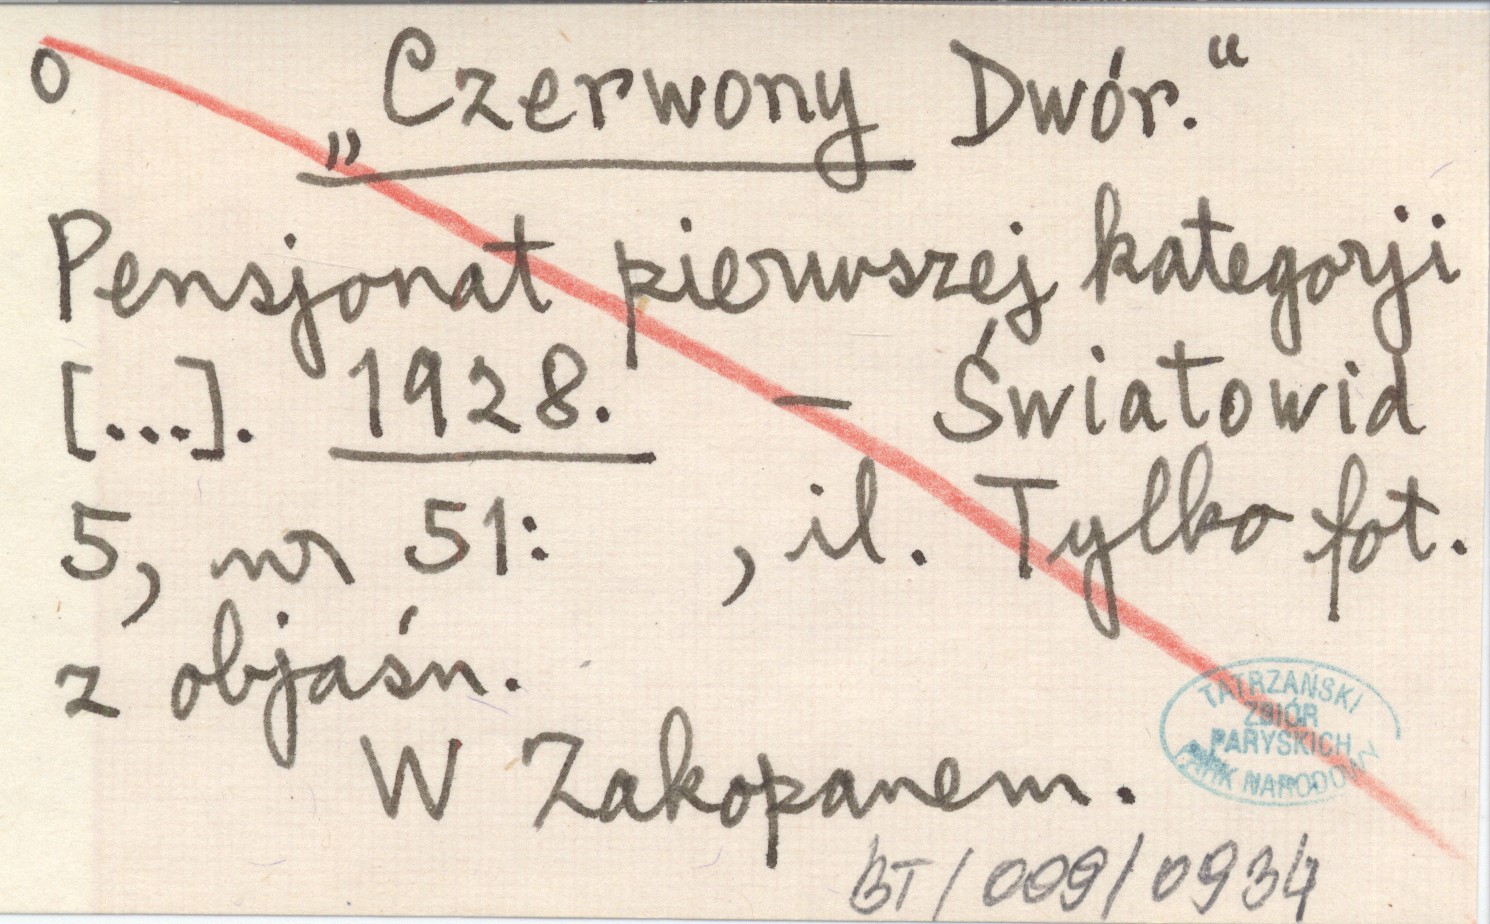 o „Czerwony Dwór.“
Pensjonat pierwszej kategorji
[...]. 1928. – Światowid
5, nr 51: , il. Tylko fot.
z objaśn.
W Zakopanem.
TATRZAŃSKI
ZBIÓR
PARYSKICH
PARK NARODOWY
BT/009/0934